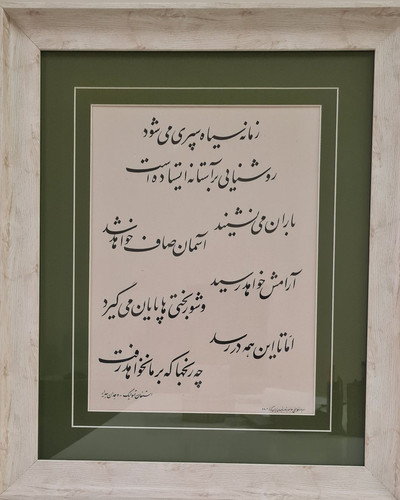 زمانه سیاه سپری می‌شود
روشنایی بر آستانه ایستاده است
باران می‌نشیند
آسمان صاف خواهد شد
آرامش خواهد رسید
و شوربختی‌ها پایان می‌گیرد
امّا تا این همه در رسد
چه رنجها که بر ما نخواهد رفت